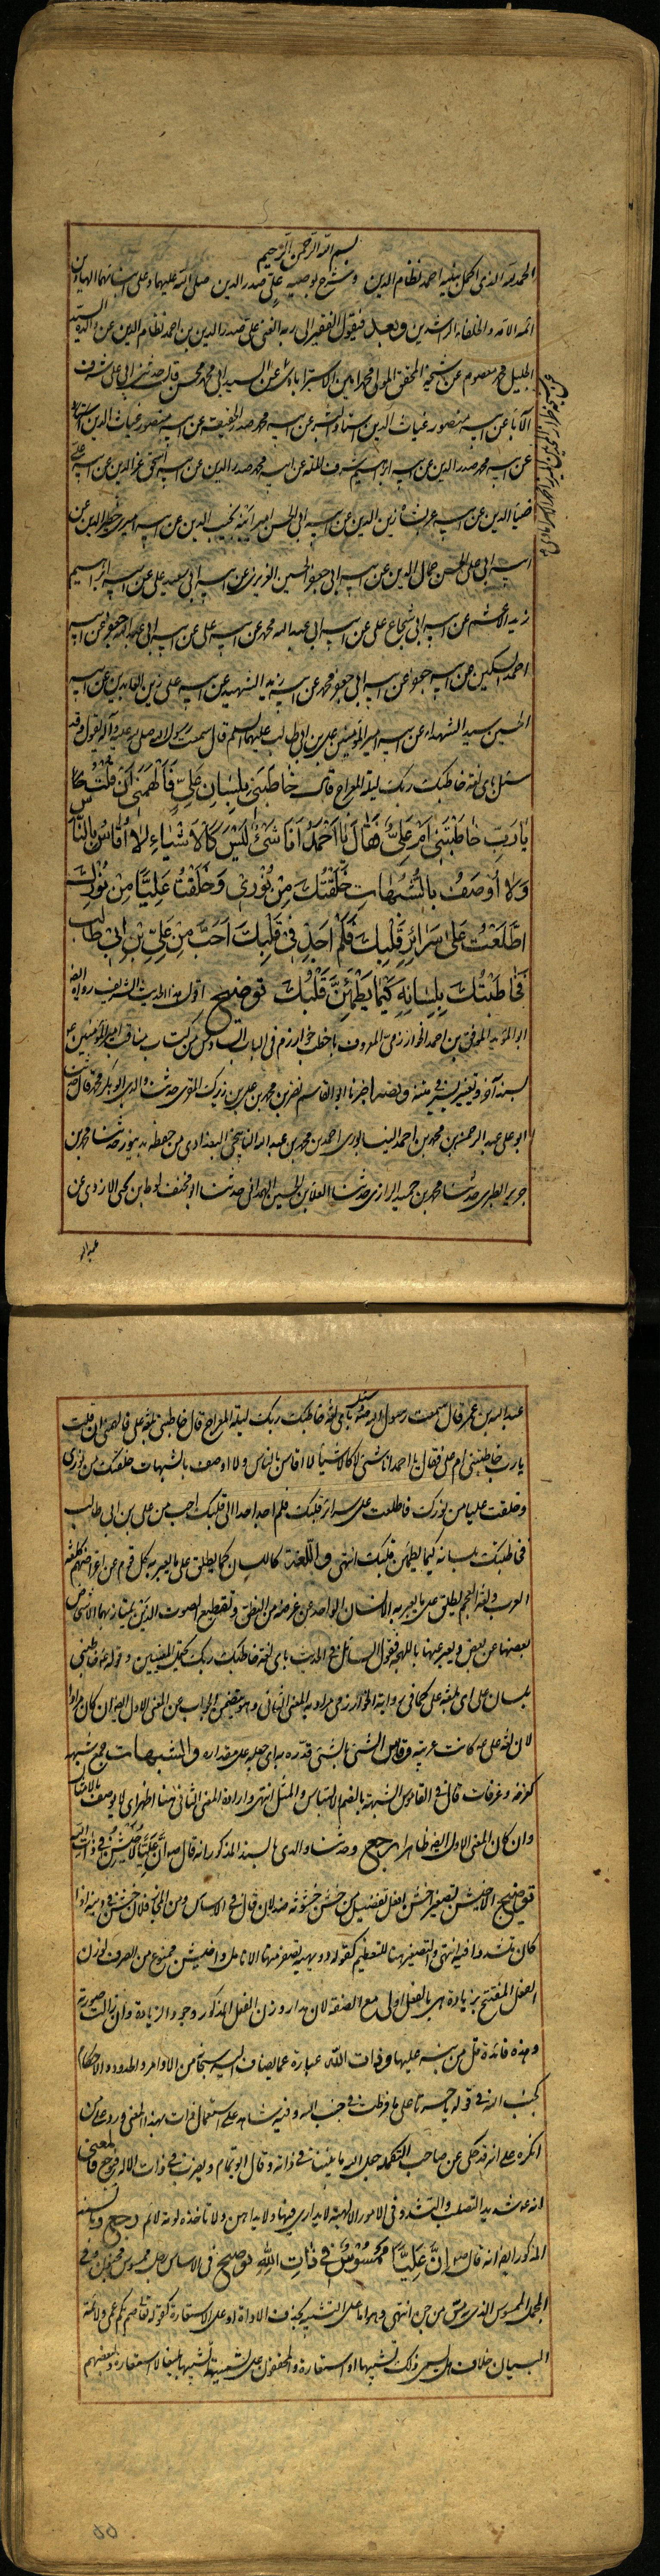 بسم الله الرحمن الرحيم
الحمد لله الذي اكمل بنبيه احمد نظام الدين وشرح بوصيه علي صدر الدين صلى الله عليهما وعلى ابنائهما الهادين
ائمة الامة والخلفاء الراشدين وبعد فيقول الفقير الى ربه الغني علي صدر الدين بن احمد نظام الدين عن والده السيد
الجليل محمد معصوم عن شيخه المحقق المولى محمد امين الاسترابادي عن السيد ابي محمد محسن قال حدثني ابي علي شرف
الآباء عن ابيه منصور غياث الدين استاد البشر عن ابيه محمد صدر الحقيقة عن ابيه منصور غياث الدين
عن ابيه محمد صدر الدين عن ابيه ابراهيم شرف الملة عن ابيه محمد صدر الدين عن ابيه اسحق عز الدين عن ابيه علي
ضياء الدين عن ابيه عربشاه زين الدين عن ابيه ابي الحسن اميرانبه نجيب الدين عن ابيه اميري خطير الدين عن
ابيه ابي علي الحسن جمال الدين عن ابيه ابي جعفر الحسين العزيزي عن ابيه ابي سعيد علي عن ابيه ابراهيم
زيد الاعشم عن ابيه ابي شجاع علي عن ابيه ابي عبد الله محمد عن ابيه علي عن ابيه ابي عبد الله جعفر عن ابيه
احمد السكين عن ابيه جعفر عن ابيه ابي جعفر محمد عن ابيه زيد الشهيد عن ابيه علي زين العابدين عن ابيه
الحسين سيد الشهداء عن ابيه امير المؤمنين علي بن ابي طالب عليهم السلم قال سمعت رسول الله صلى الله عليه وآله يقول وقد
سئل باي لغة خاطبك ربك ليلة المعراج قال خَاطَبَنِي بِلِسَانِ عَلِيٍّ فَأَلْهَمَنِي أَنْ قُلْتُ
يَا رَبِّ خَاطَبْتَنِي أَمْ عَلِيٌّ فَقَالَ يَا أَحْمَدُ أَنَا شَيْءٌ لَيْسَ كَالأَشْيَاءِ لَا أُقَاسُ بِالنَّاسِ
وَلَا أُوصَفُ بِالشُّبُهَاتِ خَلَقْتُكَ مِنْ نُورِي وَخَلَقْتُ عَلِيًّا مِنْ نُورِكَ
اطَّلَعْتُ عَلَى سَرَائِرِ قَلْبِكَ فَلَمْ أَجِدْ فِي قَلْبِكَ أَحَبَّ مِنْ عَلِيِّ بْنِ أَبِي طَالِبٍ
فَخَاطَبْتُكَ بِلِسَانِهِ كَيْمَا يَطْمَئِنَّ قَلْبُكَ توضيح اقول هذا الحديث الشريف رواه ايضا
ابو المؤيد الموفق بن احمد الخوارزمي المعروف باخطب خوارزم في الباب السادس من كتاب مناقب امير المؤمنين ع
بسند آخر وتغيير يسير في متنه ونصه اخبرنا ابو القاسم نصر بن محمد بن علي بن زيرك المقري حدثنا والدي ابو بكر محمد قال حدثنا
ابو علي عبد الرحمن بن محمد بن احمد النيسابوري احمد بن محمد بن عبد الله النانجي البغدادي من حفظه بدينور حدثنا محمد بن
جرير الطبري حدثنا محمد بن حميد الرازي حدثنا العلاء بن الحسين الهمداني حدثنا ابو مخنف لوط بن يحيى الازدي عن
عبد الله
عبد الله بن عمر قال سمعت رسول الله ص وسئل باي لغة خاطبك ربك ليلة المعراج قال خاطبني بلغة علي فالهمني ان قلت
يا رب خاطبتني ام علي فقال يا احمد انا شيء لا كالاشياء لا اقاس بالناس ولا اوصف بالشبهات خلقتك من نوري
وخلقت عليا من نورك فاطلعت على سرائر قلبك فلم اجد احدا الى قلبك احب من علي بن ابي طالب
فخاطبتك بلسانه كيما يطمئن قلبك انتهى واللغة كاللسان كما يطلق على ما يعبر به كل قوم عن اغراضهم كلغة
العرب ولغة العجم يطلق على ما يعبر به الانسان الواحد عن غرضه من النطق وتقطيع الصوت الذي يمتاز بهما الاشخاص
بعضها عن بعض ويعبر عنها باللهجة فقول السائل في الحديث باي لغة خاطبك ربك يحتمل المعنيين وقوله ع خاطبني
بلسان علي اي بلغة علي كما في رواية الخوارزمي مراد به المعنى الثاني وهو يتضمن الجواب عن المعنى الاول ايضا ان كان مرادا
لان لغة علي ع كانت عربية وقاس الشيء بالشيء قدره به اي جعله على مقداره والشبهات جمع شبهة
كغرفة وغرفات قال في القاموس الشبهة بالضم الالتباس والمثل انتهى وارادة المعنى الثاني هنا اظهر اي لا يوصف بالامثال
وان كان المعنى الاول ايضا ظاهرا رجع وحدثنا والدي بالسند المذكور انه قال ص إِنَّ عَلِيًّا لَأُخَيْشِنُ فِي ذَاتِ اللهِ
توضيح الاخيشن تصغير اخشن افعل تفضيل من خشن خشونة ضد لان قال في الاساس ومن المجاز فلان خشن في دينه اذا
كان متشددا فيه انتهى والتصغير هنا للتعظيم كقوله دويهية تصفر منها الانامل واخيشن ممنوع من الصرف لوزن
الفعل المفتتح بزيادة هي بالفعل اولى مع الصفة لان مدار وزن الفعل المذكور وجود الزيادة وان زالت صورته
وهذه فائدة قل من نبه عليها وذات الله عبارة عما يضاف اليه سبحانه من الاوامر والحدود والاحكام
كجنب الله في قوله يا حسرتا على ما فرطت في جنب الله وفيه شاهد على استعمال ذات بهذا المعنى ورد على من
انكره على انه قد حكي عن صاحب التكملة جعل الله ما بيننا في ذاته وقال ابو تمام ويضرب في ذات الاله فيوجع فالمعنى
انه ع شديد التصلب والتشدد في الامور الالهية لا يداري فيها ولا يداهن ولا تاخذه لومة لائم رجع وبالسند
المذكور ايضا انه قال ص إِنَّ عَلِيًّا مَمْسُوسٌ فِي ذَاتِ اللهِ توضيح في الاساس رجل ممسوس مجنون وفي
المجمل الممسوس الذي به مس من جن انتهى وهو اما على التشبيه بحذف الاداة او على الاستعارة كقوله تعالى صم بكم عمي ولائمة
البيان خلاف هل يسمى ذلك تشبيها او استعارة والمحققون على تسميته تشبيها بليغا لا استعارة وبعضهم